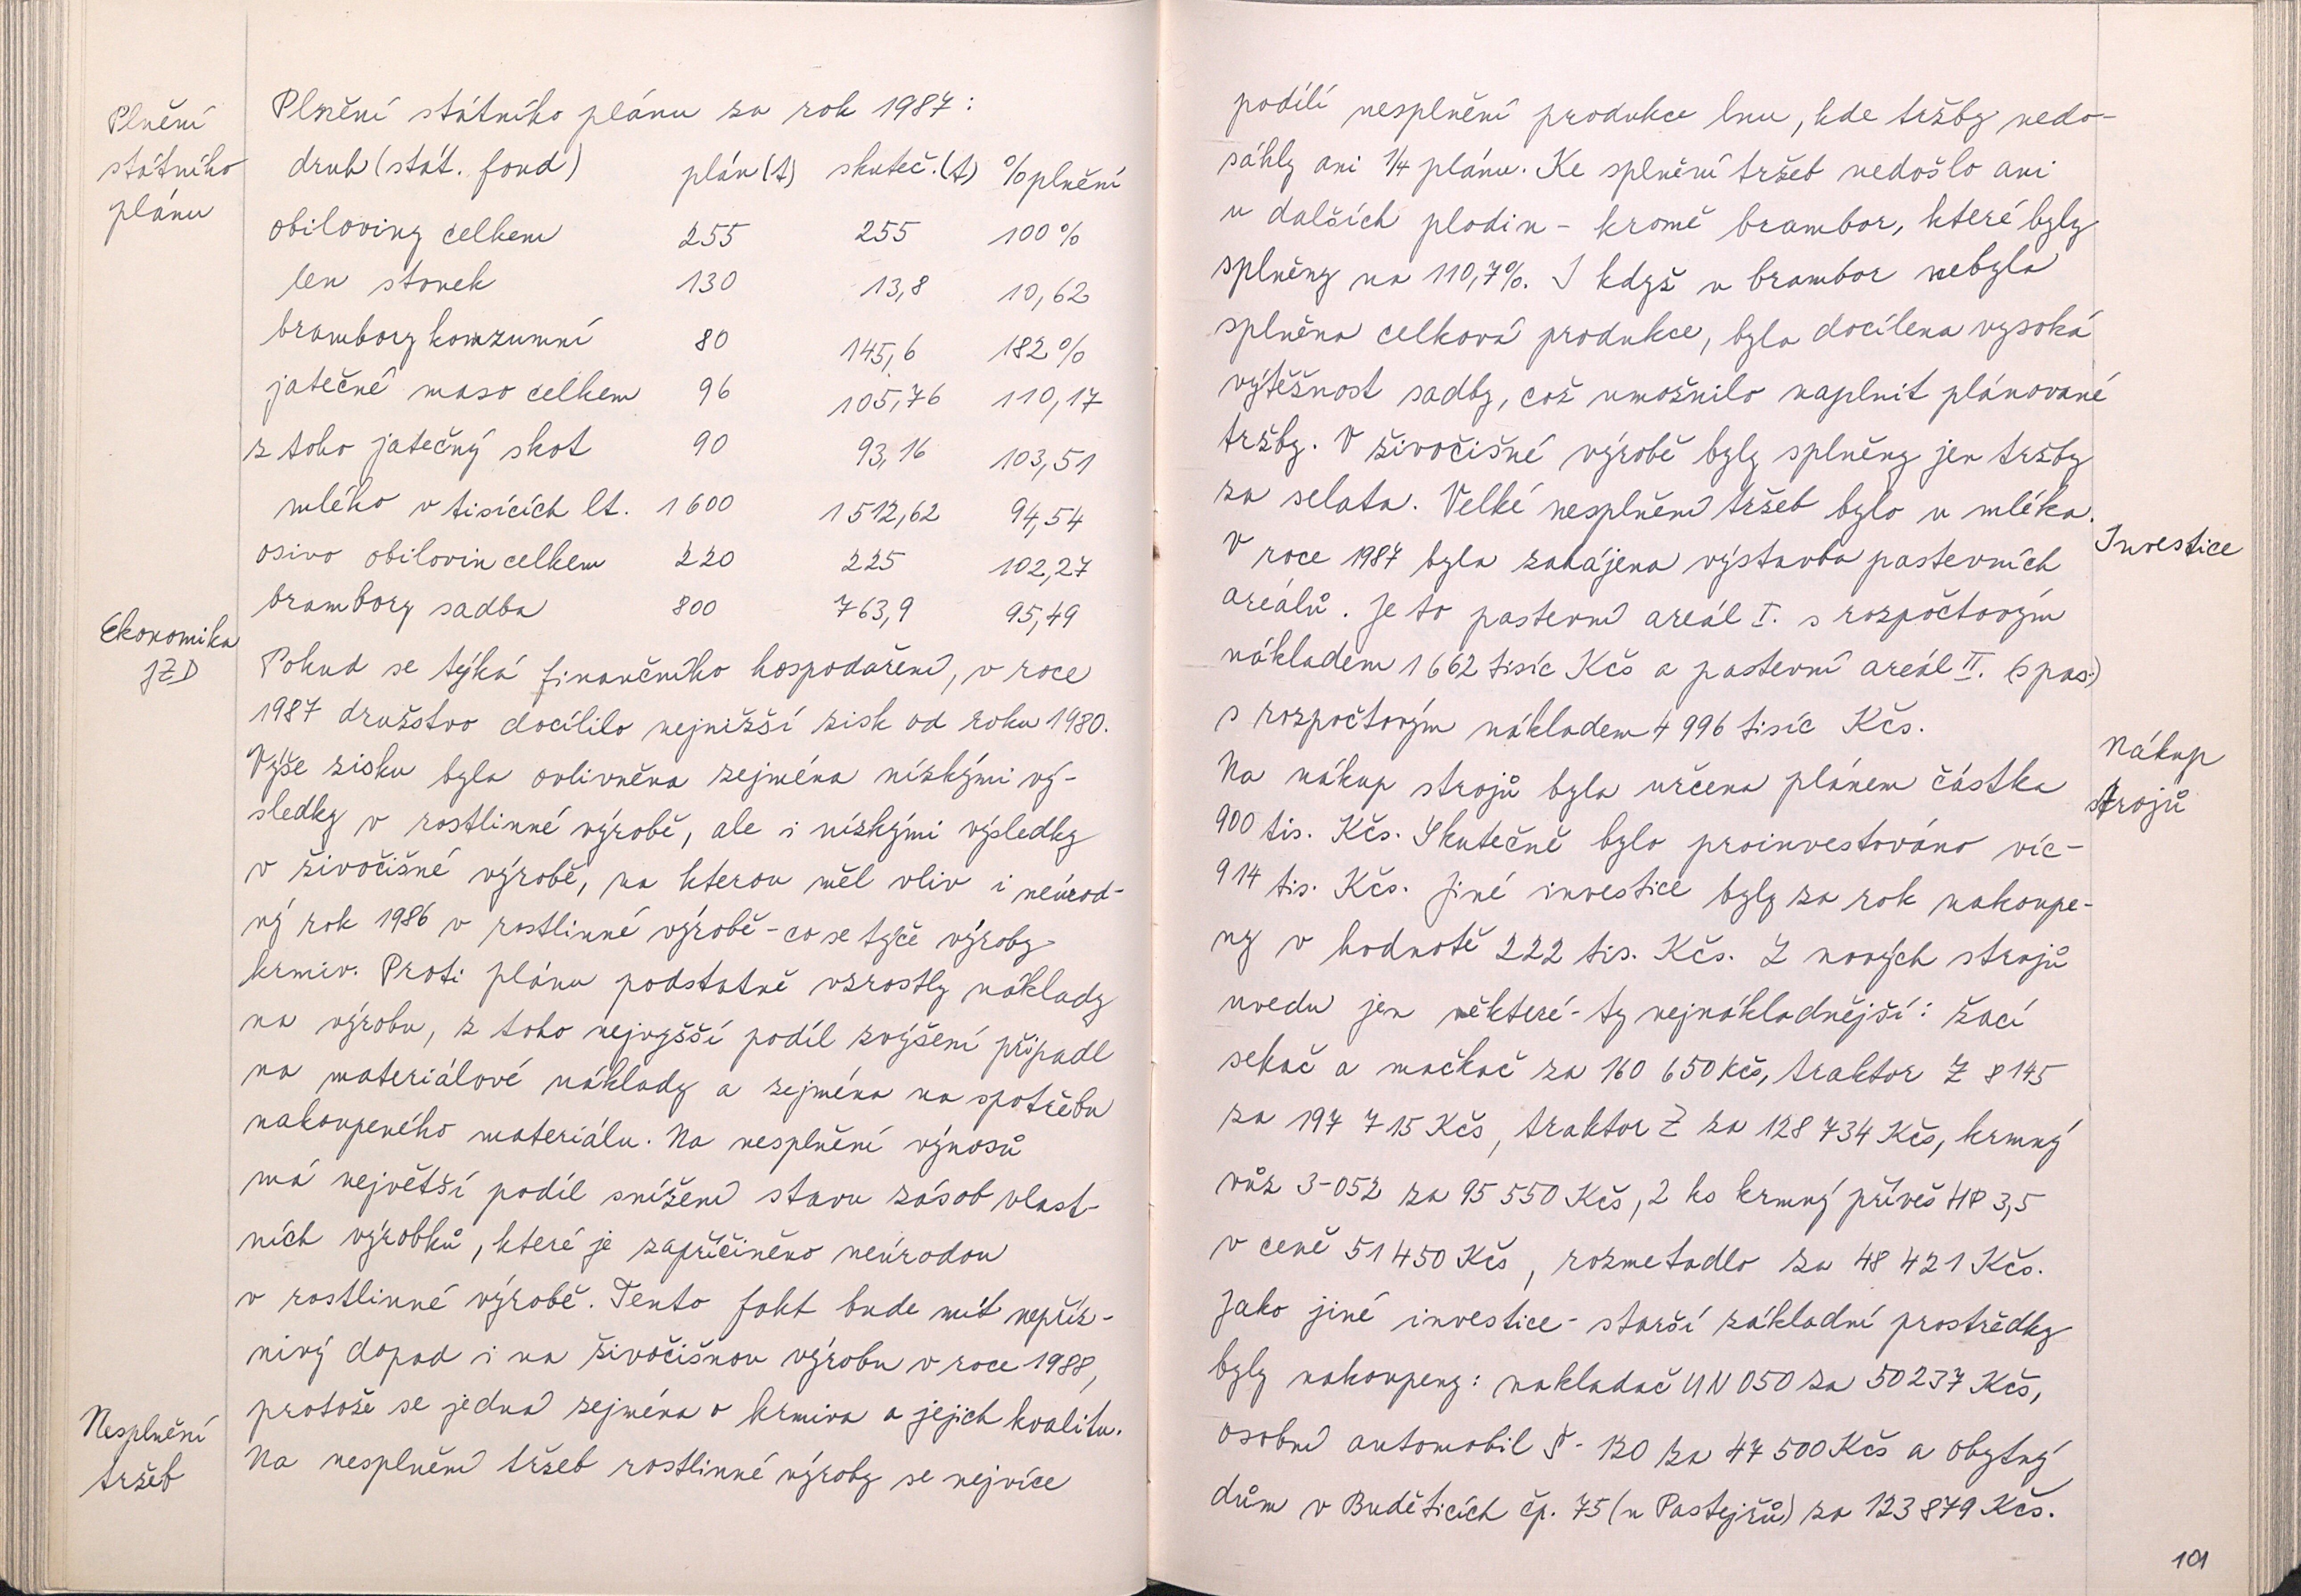 Plnění
státního
plánu
Plnění státního plánu za rok 1987:
druh (stát. fond) plán (t) skuteč. (t) % plnění
obiloviny celkem 255 255 100 %
len stonek 130 13,8 10,62
brambory konzumní 80 145,6 182 %
jatečné maso celkem 96 105,76 110,17
z toho jatečný skot 90 93,16 103,51
mléko v tisících lt. 1 600 1 512,62 94,54
osivo obilovin celkem 220 225 102,27
brambory sadba 800 763,9 95,49
Ekonomika
JZD
Pokud se týká finančního hospodaření, v roce
1987 družstvo docílilo nejnižší zisk od roku 1980.
Výše zisku byla ovlivněna zejména nízkými vý-
sledky v rostlinné výrobě, ale i nízkými výsledky
v živočišné výrobě, na kterou měl vliv i neúrod-
ný rok 1986 v rostlinné výrobě - co se týče výroby
krmiv. Proti plánu podstatně vzrostly náklady
na výrobu, z toho nejvyšší podíl zvýšení připadl
na materiálové náklady a zejména na spotřebu
nakoupeného materiálu. Na nesplnění výnosů
má největší podíl snížení stavu zásob vlast-
ních výrobků, které je zapříčiněno neúrodou
v rostlinné výrobě. Tento fakt bude mít nepříz-
nivý dopad i na živočišnou výrobu v roce 1988,
protože se jedná zejména o krmiva a jejich kvalitu.
Nesplnění
tržeb
Na nesplnění tržeb rostlinné výroby se nejvíce
podílí nesplnění produkce lnu, kde tržby nedo-
sáhly ani 1/4 plánu. Ke splnění tržeb nedošlo ani
u dalších plodin - kromě brambor, které byly
splněny na 110,7%. I když u brambor nebyla
splněna celková produkce, byla docílena vysoká
výtěžnost sadby, což umožnilo naplnit plánované
tržby. V živočišné výrobě byly splněny jen tržby
za selata. Velké nesplnění tržeb bylo u mléka.
Investice
V roce 1987 byla zahájena výstavba pastevních
areálů. Je to pastevní areál I. s rozpočtovým
nákladem 1 662 tisíc Kčs a pastevní areál II. (spas.)
s rozpočtovým nákladem 4 996 tisíc Kčs.
Nákup
strojů
Na nákup strojů byla určena plánem částka
900 tis. Kčs. Skutečně bylo proinvestováno víc -
914 tis. Kčs. Jiné investice byly za rok nakoupe-
ny v hodnotě 222 tis. Kčs. Z nových strojů
uvedu jen některé - ty nejnákladnější: žací
sekač a mačkač za 160 650 Kčs, traktor Z 8145
za 197 715 Kčs, traktor Z za 128 734 Kčs, krmný
vůz 3-052 za 95 550 Kčs, 2 ks krmný přívěs HP 3,5
v ceně 51 450 Kčs, rozmetadlo za 48 421 Kčs.
Jako jiné investice - starší základní prostředky
byly nakoupeny: nakladač UN 050 za 50 237 Kčs,
osobní automobil Š - 120 za 47 500 Kčs a obytný
dům v Buděticích čp. 75 (u Pastejřů) za 123 879 Kčs.
101